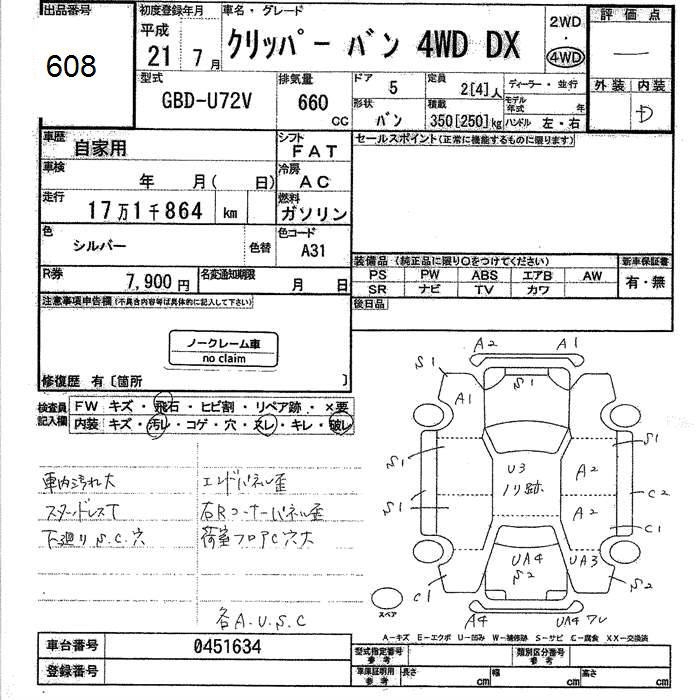 出品番号
608
初度登録年月
平成
21 7月
車名・グレード
クリッパー バン 4WD DX
2WD
・
4WD
評価点
—
外装 内装
D
型式
GBD-U72V
排気量
660 cc
ドア 5
定員 2[4]人
ディーラー・並行
形状 バン
積載 350[250]kg
モデル年式 年
ハンドル 左・右
車歴 自家用
シフト FAT
車検 年 月( 日)
冷房 AC
走行 17万1千864 km
燃料 ガソリン
色 シルバー 色替
色コード A31
R券 7,900円
名変通知期限 月 日
セールスポイント(正常に機能するものに限ります)
装備品 (純正品に限り○をつけてください)
PS PW ABS エアB AW
SR ナビ TV カワ
新車保証書
有・無
後日品
注意事項申告欄(不具合内容等は具体的に記入して下さい)
ノークレーム車
no claim
修復歴 有〔箇所 〕
検査員記入欄
FW キズ・飛石・ヒビ割・リペア跡・×要
内装 キズ・汚レ・コゲ・穴・スレ・キレ・破レ
車内汚れ大
スタッドレスT
下廻りS.C.穴
エンドパネル歪
右Rコーナーパネル歪
荷室フロアC穴大
各A.U.S.C
A2 A1
S1 S1
A1
S1 S1
U3
ノリ跡
A2
C2
S1
A2
C1
UA4
S2
UA3
C1 S2
スペア
A4 UA4 ワレ
A-キズ E-エクボ U-凹み W-補修跡 S-サビ C-腐食 XX-交換済
車台番号 0451634
登録番号
型式指定番号 参考
類別区分番号 参考
車庫証明用 参考
長さ cm 幅 cm 高さ cm